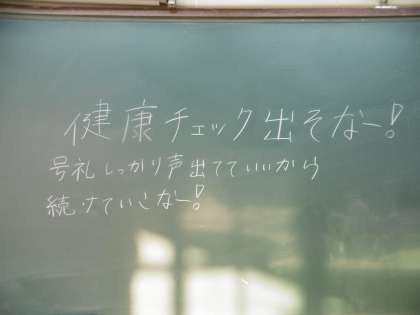 健康チェック出そなー!
号礼しっかり声出てていいから
続けていこなー!